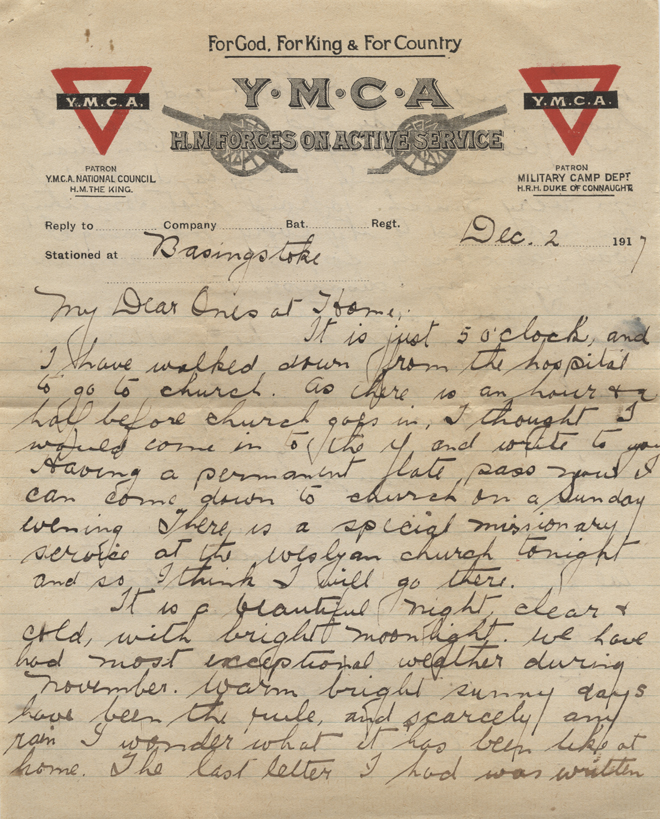 For God, For King & For Country
Y·M·C·A
H.M FORCES ON ACTIVE SERVICE
Y.M.C.A.
PATRON
Y.M.C.A. NATIONAL COUNCIL
H.M. THE KING.
Y.M.C.A.
PATRON
MILITARY CAMP DEPT
H.R.H. DUKE OF CONNAUGHT.
Reply to Company Bat. Regt.
Stationed at Basingstoke
Dec. 2 1917
My Dear Ones at Home,
It is just 5 o'clock, and
I have walked down from the hospital
to go to church. As there is an hour & a
half before church goes in, I thought I
would come in to the Y and write to you
Having a permanent late pass now I
can come down to church on a Sunday
evening There is a special missionary
service at the Wesleyan church tonight
and so I think I will go there.
It is a beautiful night, clear &
cold, with bright moonlight. We have
had most exceptional weather during
November. Warm bright sunny days
have been the rule, and scarcely any
rain I wonder what it has been like at
home. The last letter I had was written